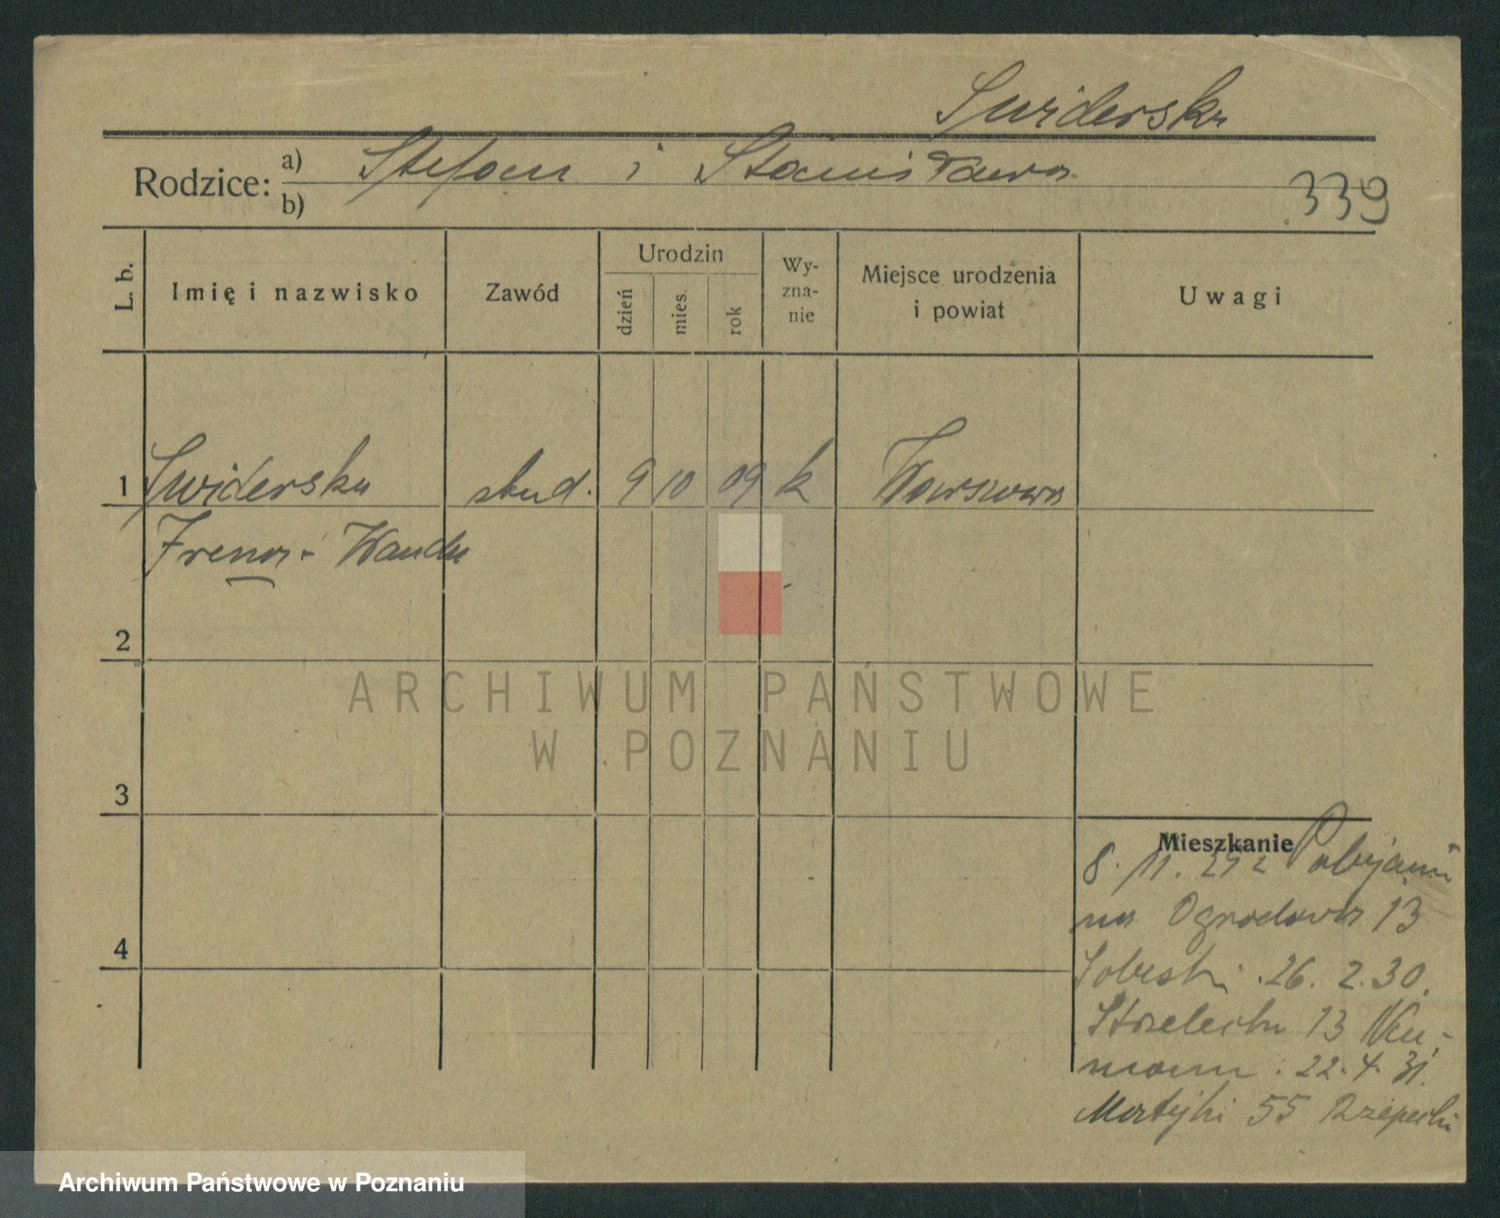 Swiderska
Rodzice: a) Stefan i Stanisława
b)
339
L. b.
Imię i nazwisko
Zawód
Urodzin
dzień
mies.
rok
Wy-
zna-
nie
Miejsce urodzenia
i powiat
Uwagi
1 Swiderska stud. 9 10 09 k Warszawa
Irena - Wanda
2
ARCHIWUM PAŃSTWOWE
W POZNANIU
3
Mieszkanie
8. 11. 29 z Pabjanic
na Ogrodowa 13
4
Sobeski 26. 2. 30.
Strzelecka 13 Neu-
mann. 22. 4. 31.
Matejki 55 Rzepecki
Archiwum Państwowe w Poznaniu